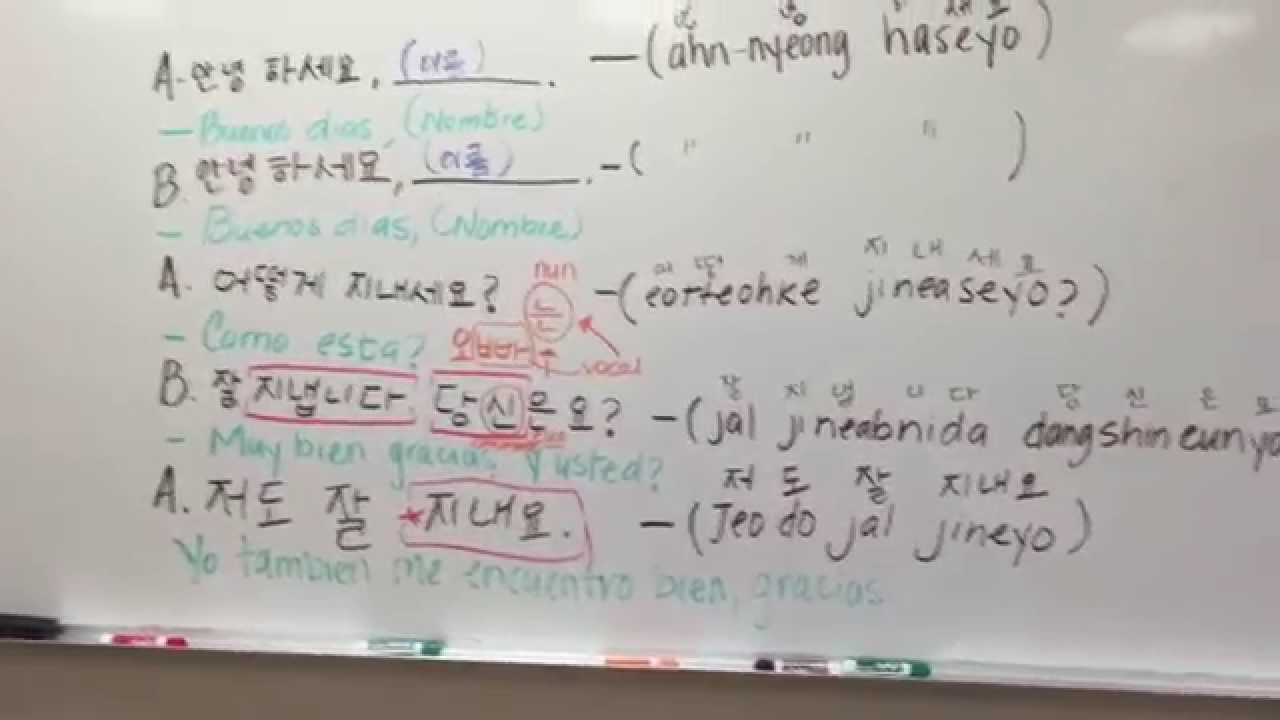 A. 안녕 하세요, (이름). - (ahn-nyeong haseyo)
- Buenos dias, (Nombre)
B. 안녕 하세요, (이름). - ( " " " )
- Buenos dias, (Nombre)
nun
지 내 세 요
A. 어떻게 지내세요? - (eotteohke jineaseyo?)
- Como esta? 오빠 vocal
잘 지 냅 니 다 당 신 은 요
B. 잘 지냅니다. 당신은요? - (jal jineabnida dangshineunyo
- Muy bien gracias, Y usted?
저 도 잘 지내요
A. 저도 잘 *지내요. - (Jeo do jal jineyo)
Yo tambien me encuentro bien, gracias